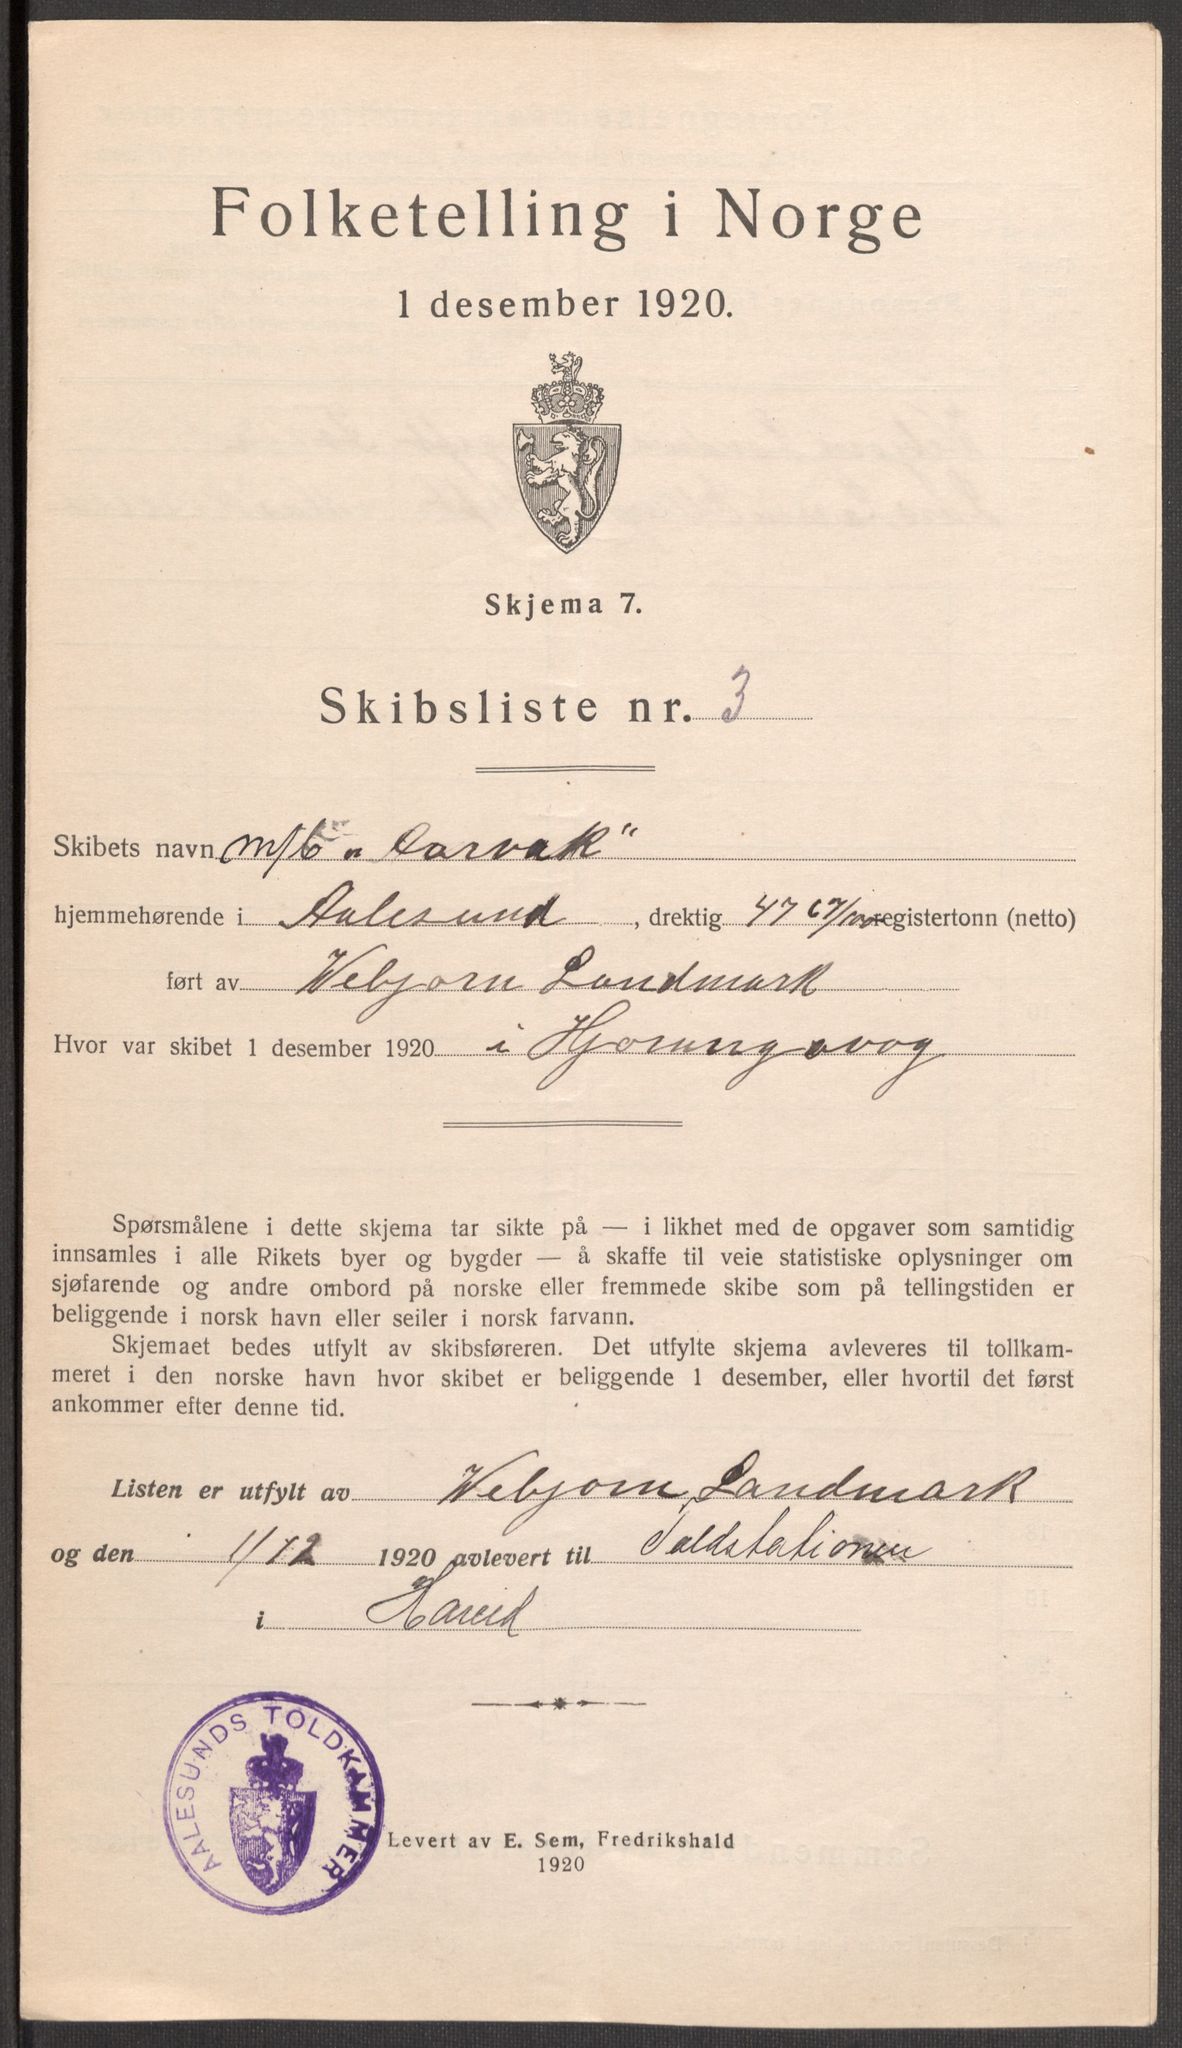 Folketelling i Norge
1 desember 1920.
Skjema 7.
Skibsliste nr. 3
Skibets navn m/b „Aarvak"
hjemmehørende i Aalesund, drektig 47 67/100 registertonn (netto)
ført av Webjorn Landmark
Hvor var skibet 1 desember 1920 i Hjorungavog
Spørsmålene i dette skjema tar sikte på — i likhet med de opgaver som samtidig
innsamles i alle Rikets byer og bygder — å skaffe til veie statistiske oplysninger om
sjøfarende og andre ombord på norske eller fremmede skibe som på tellingstiden er
beliggende i norsk havn eller seiler i norsk farvann.
Skjemaet bedes utfylt av skibsføreren. Det utfylte skjema avleveres til tollkam-
meret i den norske havn hvor skibet er beliggende 1 desember, eller hvortil det først
ankommer efter denne tid.
Listen er utfylt av Webjorn Landmark
og den 1/12 1920 avlevert til Toldstationen
i Hareid
AALESUNDS TOLDKAMMER
Levert av E. Sem, Fredrikshald
1920